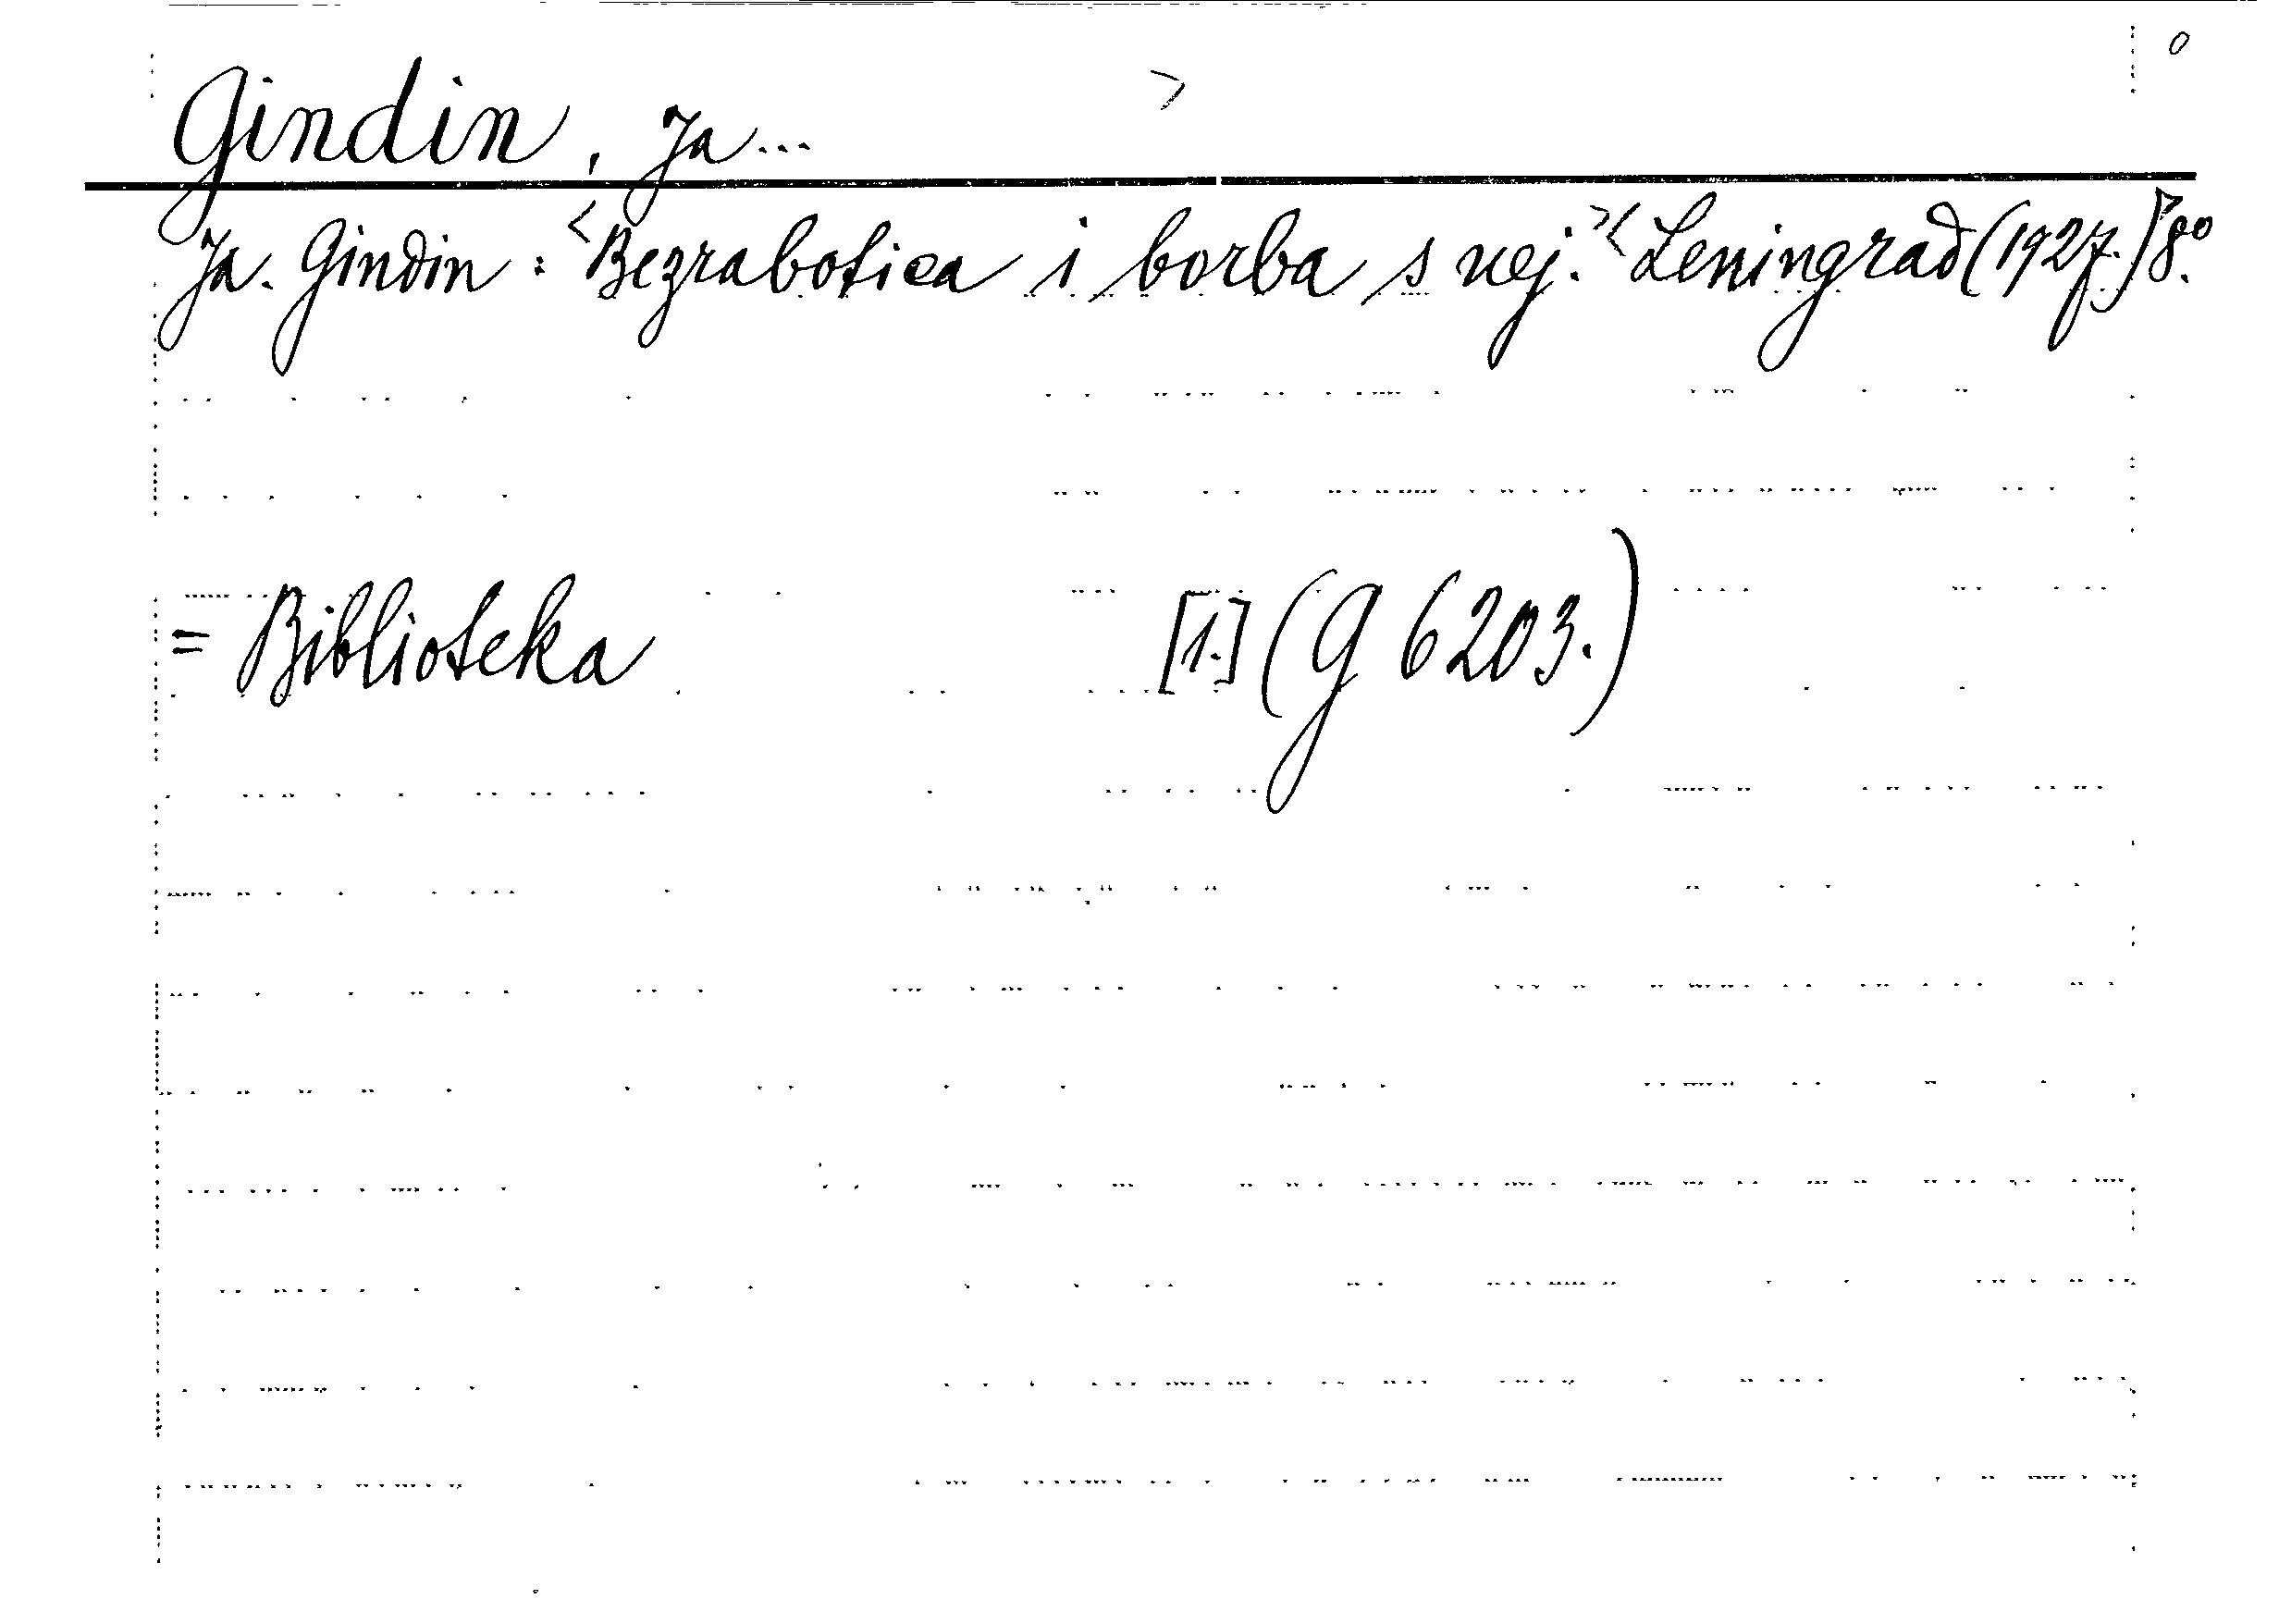 Gindin, Ja...
Ja. Gindin: <Bezrabotica i borba s nej.> <Leningrad (1927.)> 8.º
= Biblioteka [1.] (G 6203.)